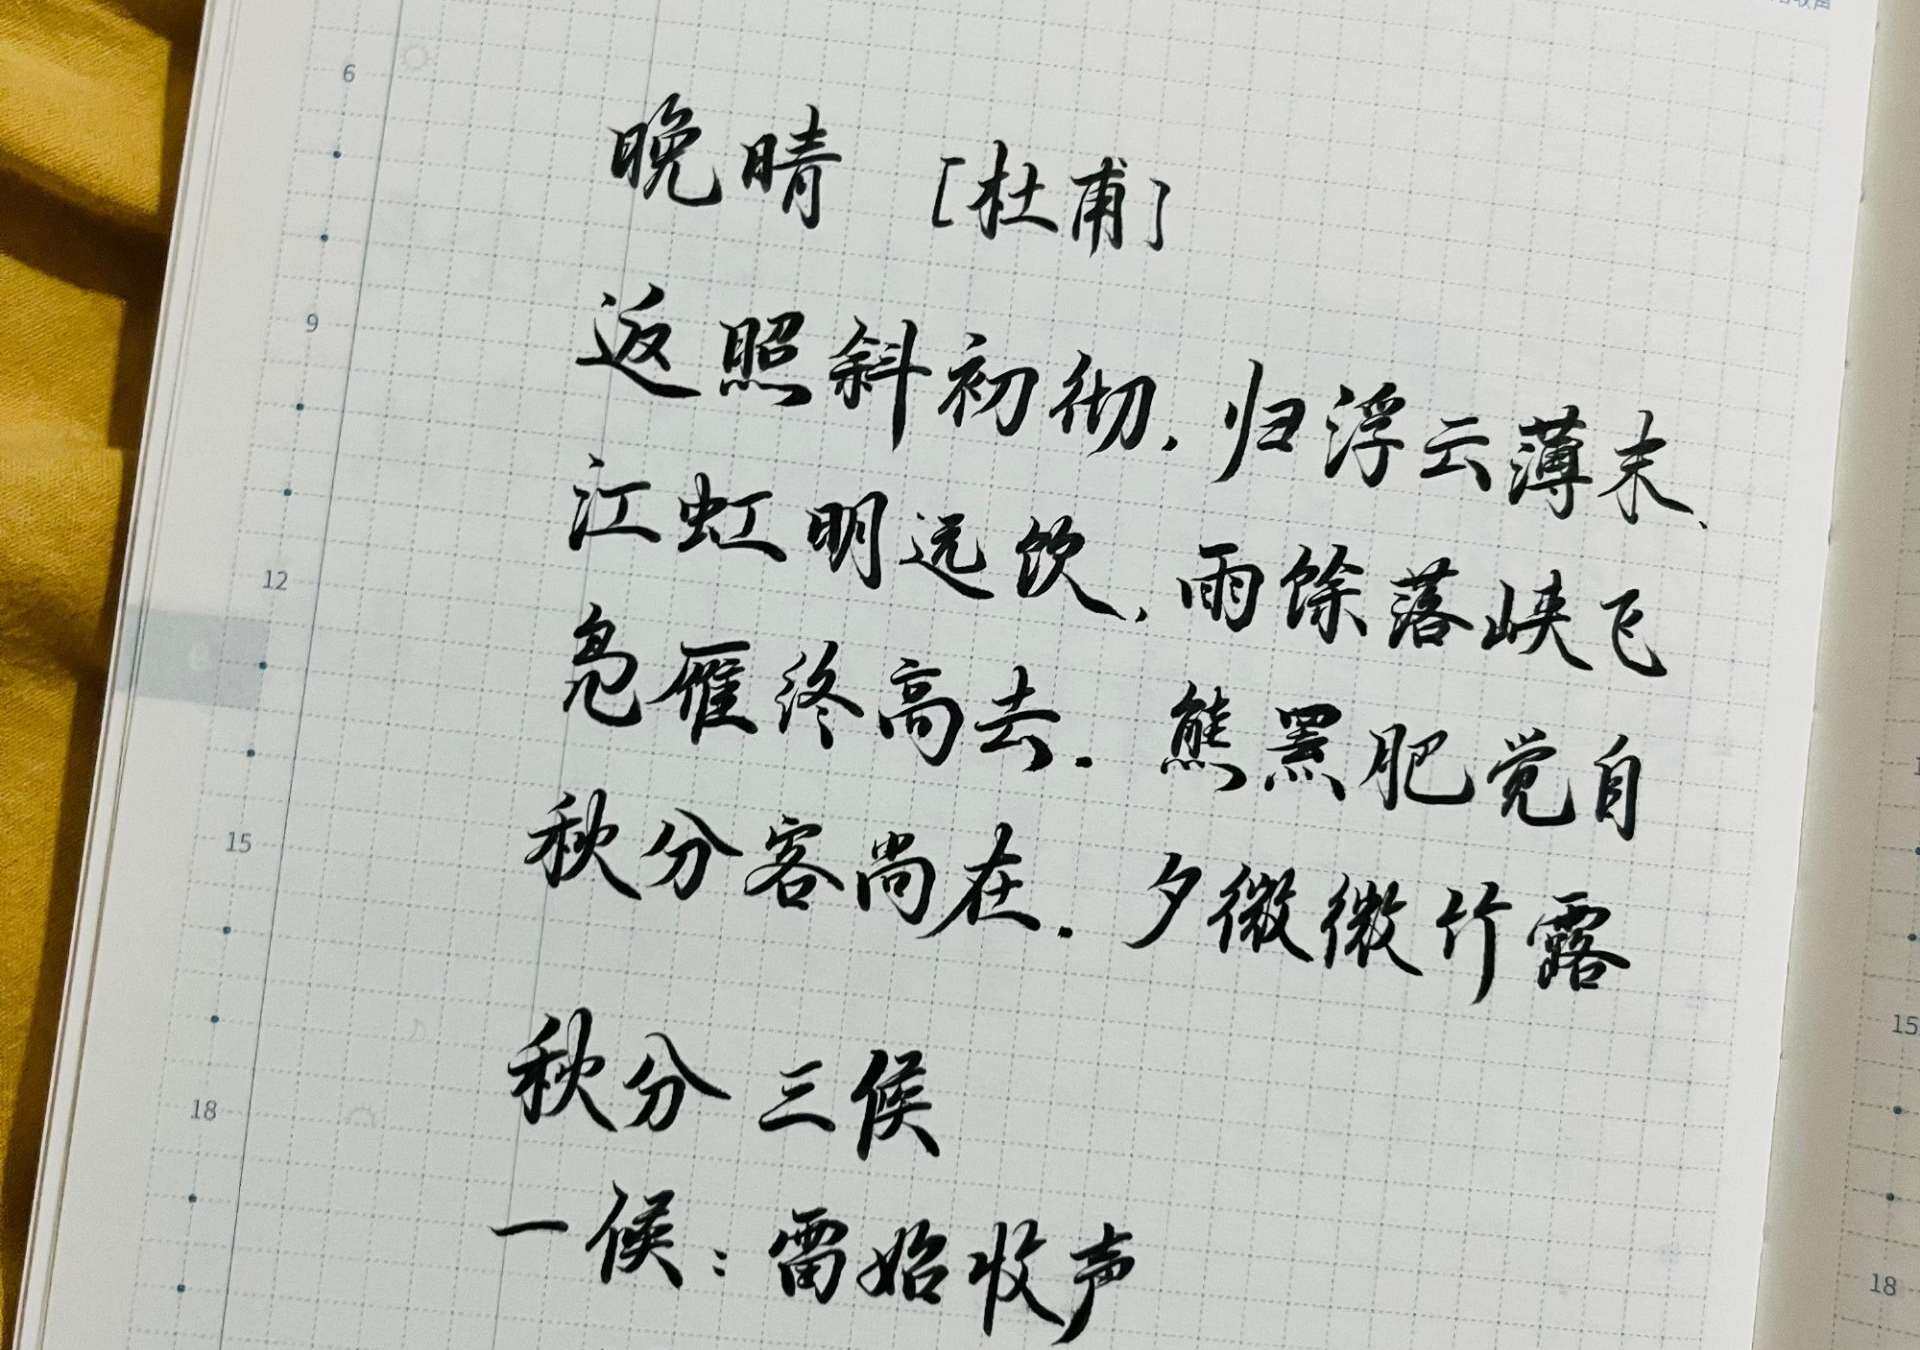 收声
6
晚晴 [杜甫]
9
返照斜初彻,归浮云薄末、
江虹明远饮,雨馀落峡飞
12
凫雁终高去.熊罴肥觉自
15
秋分客尚在.夕微微竹露
15
秋分三候
18
一候:雷始收声
18